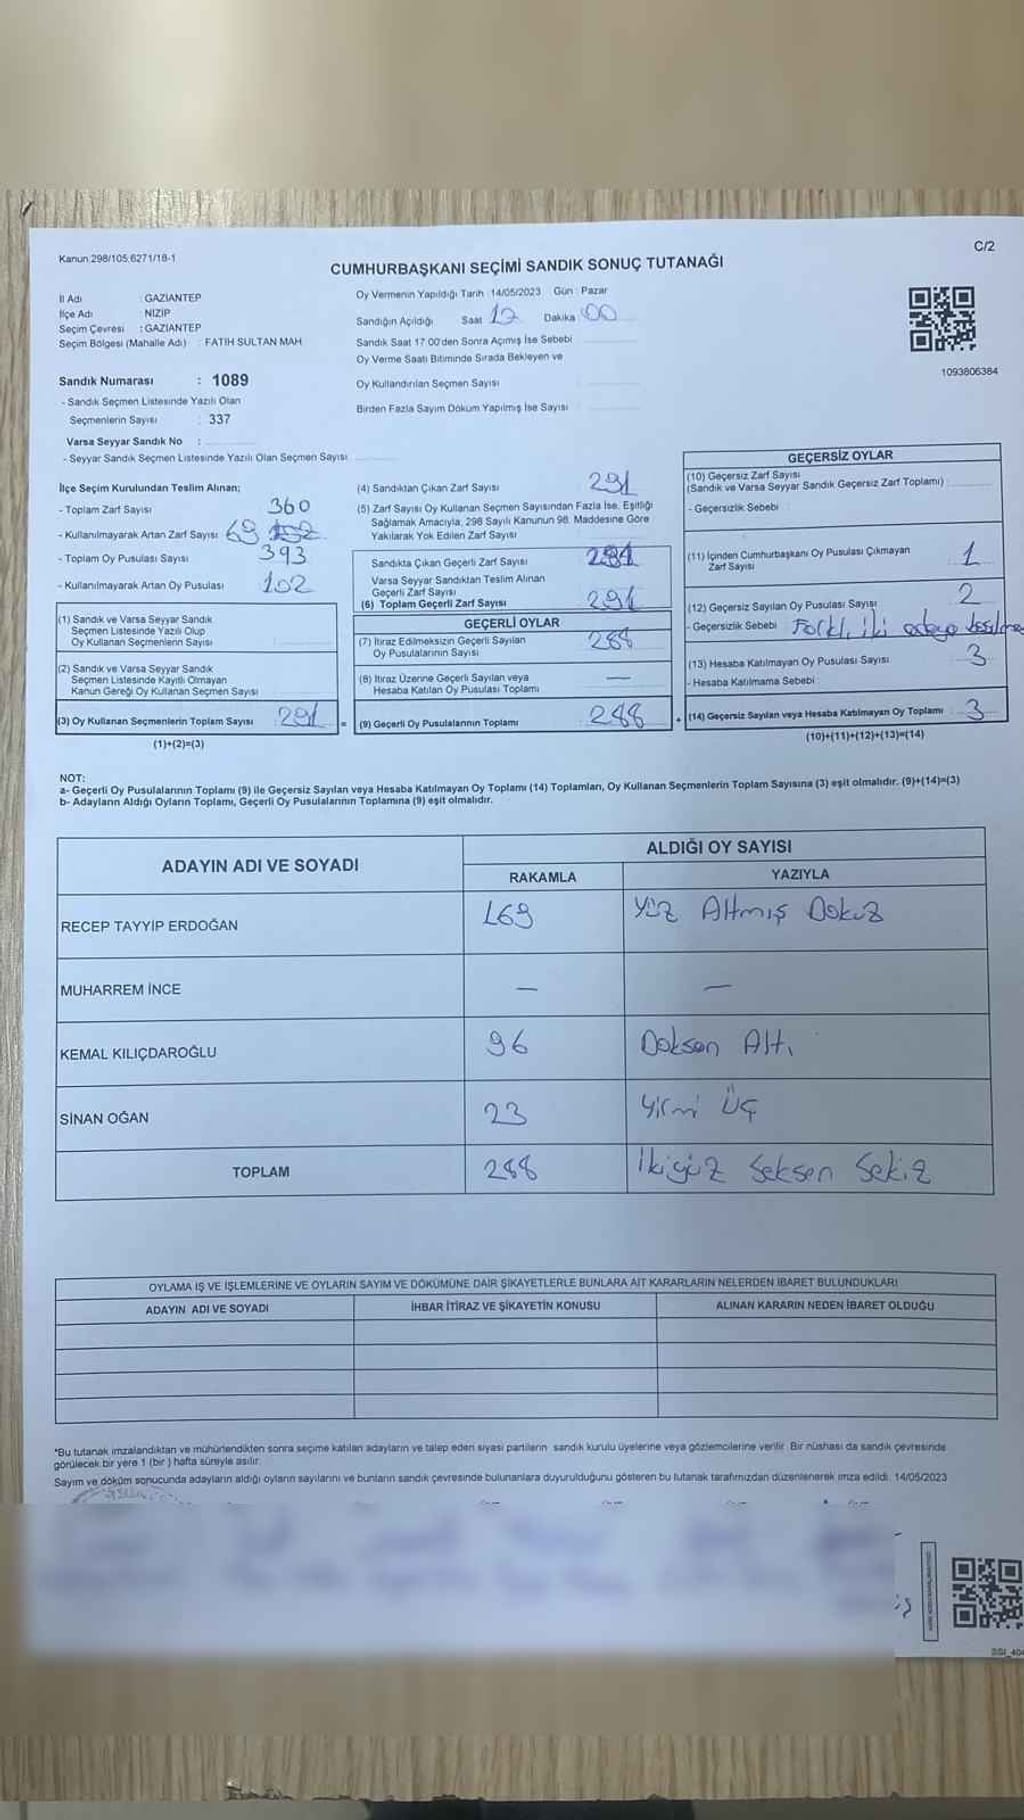 Kanun 298/105;6271/18-1
C/2
CUMHURBAŞKANI SEÇİMİ SANDIK SONUÇ TUTANAĞI
İl Adı : GAZİANTEP
İlçe Adı : NİZİP
Seçim Çevresi : GAZİANTEP
Seçim Bölgesi (Mahalle Adı) : FATİH SULTAN MAH.
Oy Vermenin Yapıldığı Tarih : 14/05/2023 Gün : Pazar
Sandığın Açıldığı Saat 17 Dakika 00
Sandık Saat 17:00'den Sonra Açmış İse Sebebi
Oy Verme Saati Bitiminde Sırada Bekleyen ve
Oy Kullandırılan Seçmen Sayısı
Birden Fazla Sayım Döküm Yapılmış İse Sayısı
1093806384
Sandık Numarası : 1089
- Sandık Seçmen Listesinde Yazılı Olan
Seçmenlerin Sayısı : 337
Varsa Seyyar Sandık No :
- Seyyar Sandık Seçmen Listesinde Yazılı Olan Seçmen Sayısı
İlçe Seçim Kurulundan Teslim Alınan;
- Toplam Zarf Sayısı 360
- Kullanılmayarak Artan Zarf Sayısı 69
- Toplam Oy Pusulası Sayısı 393
- Kullanılmayarak Artan Oy Pusulası 102
(1) Sandık ve Varsa Seyyar Sandık
Seçmen Listesinde Yazılı Olup
Oy Kullanan Seçmenlerin Sayısı
(2) Sandık ve Varsa Seyyar Sandık
Seçmen Listesinde Kayıtlı Olmayan
Kanun Gereği Oy Kullanan Seçmen Sayısı
(3) Oy Kullanan Seçmenlerin Toplam Sayısı 291 =
(1)+(2)=(3)
(4) Sandıktan Çıkan Zarf Sayısı 291
(5) Zarf Sayısı Oy Kullanan Seçmen Sayısından Fazla İse, Eşitliği
Sağlamak Amacıyla, 298 Sayılı Kanunun 98. Maddesine Göre
Yakılarak Yok Edilen Zarf Sayısı
Sandıkta Çıkan Geçerli Zarf Sayısı 291
Varsa Seyyar Sandıktan Teslim Alınan
Geçerli Zarf Sayısı
(6) Toplam Geçerli Zarf Sayısı 291
GEÇERLİ OYLAR
(7) İtiraz Edilmeksizin Geçerli Sayılan
Oy Pusulalarının Sayısı 288
(8) İtiraz Üzerine Geçerli Sayılan veya
Hesaba Katılan Oy Pusulası Toplamı —
(9) Geçerli Oy Pusulalarının Toplamı 288 +
GEÇERSİZ OYLAR
(10) Geçersiz Zarf Sayısı
(Sandık ve Varsa Seyyar Sandık Geçersiz Zarf Toplamı)
- Geçersizlik Sebebi
(11) İçinden Cumhurbaşkanı Oy Pusulası Çıkmayan
Zarf Sayısı 1
(12) Geçersiz Sayılan Oy Pusulası Sayısı 2
- Geçersizlik Sebebi Farklı iki adaya
(13) Hesaba Katılmayan Oy Pusulası Sayısı 3
- Hesaba Katılmama Sebebi
(14) Geçersiz Sayılan veya Hesaba Katılmayan Oy Toplamı 3
(10)+(11)+(12)+(13)=(14)
NOT:
a- Geçerli Oy Pusulalarının Toplamı (9) ile Geçersiz Sayılan veya Hesaba Katılmayan Oy Toplamı (14) Toplamları, Oy Kullanan Seçmenlerin Toplam Sayısına (3) eşit olmalıdır. (9)+(14)=(3)
b- Adayların Aldığı Oyların Toplamı, Geçerli Oy Pusulalarının Toplamına (9) eşit olmalıdır.
ADAYIN ADI VE SOYADI
ALDIĞI OY SAYISI
RAKAMLA YAZIYLA
RECEP TAYYİP ERDOĞAN 169 Yüz Altmış Dokuz
MUHARREM İNCE — —
KEMAL KILIÇDAROĞLU 96 Doksan Altı
SİNAN OĞAN 23 Yirmi Üç
TOPLAM 288 İkiyüz Seksen Sekiz
OYLAMA İŞ VE İŞLEMLERİNE VE OYLARIN SAYIM VE DÖKÜMÜNE DAİR ŞİKAYETLERLE BUNLARA AİT KARARLARIN NELERDEN İBARET BULUNDUKLARI
ADAYIN ADI VE SOYADI İHBAR İTİRAZ VE ŞİKAYETİN KONUSU ALINAN KARARIN NEDEN İBARET OLDUĞU
*Bu tutanak imzalandıktan ve mühürlendikten sonra seçime katılan adayların ve talep eden siyasi partilerin sandık kurulu üyelerine veya gözlemcilerine verilir. Bir nüshası da sandık çevresinde
görülecek bir yere 1 (bir) hafta süreyle asılır.
Sayım ve döküm sonucunda adayların aldığı oyların sayılarını ve bunların sandık çevresinde bulunanlara duyurulduğunu gösteren bu tutanak tarafımızdan düzenlenerek imza edildi. 14/05/2023